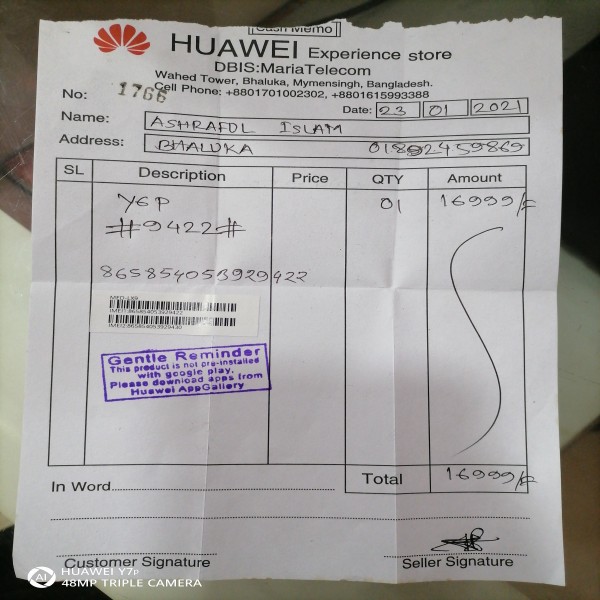 Cash Memo
HUAWEI Experience store
DBIS:MariaTelecom
Wahed Tower, Bhaluka, Mymensingh, Bangladesh.
Cell Phone: +8801701002302, +8801615993388
No: 1766
Date: 23 01 2021
Name: ASHRAFUL ISLAM
Address: BHALUKA 01892459869
SL Description Price QTY Amount
Y6P 01 16999/=
#9422#
865854053929422
MED-LX9
IMEI1:865854053929422
IMEI2:865854053929430
Gentle Reminder
This product is not pre-installed
with google play.
Please download apps from
Huawei AppGallery
Total 16999/=
In Word
Customer Signature
Seller Signature
AI HUAWEI Y7p
48MP TRIPLE CAMERA